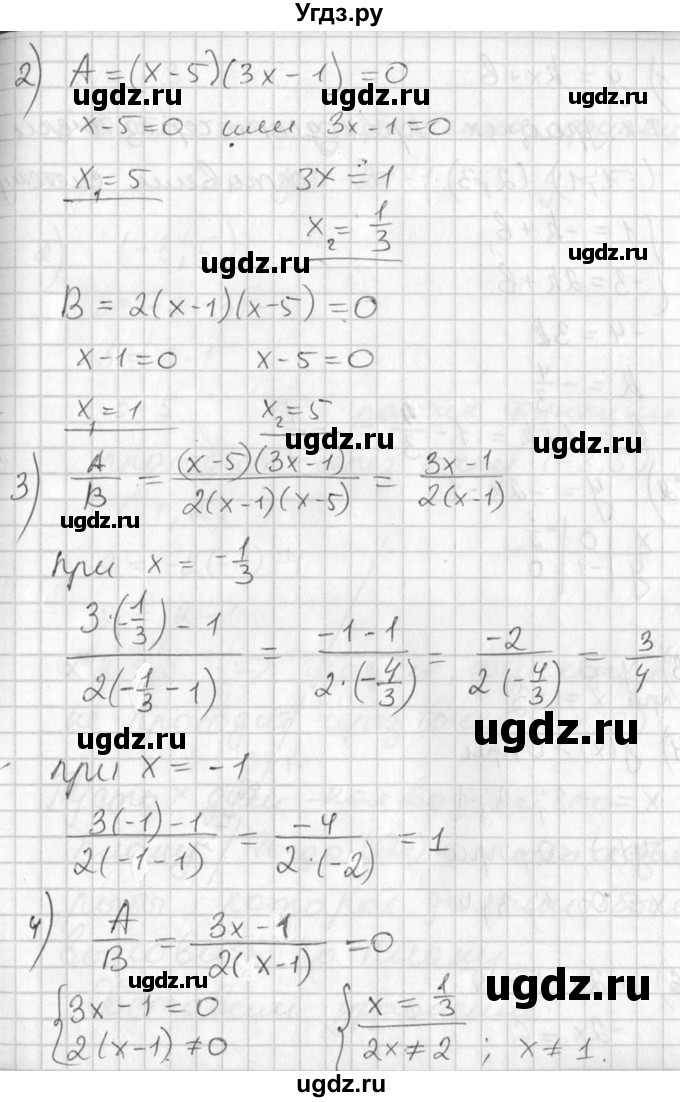 Угдз.ру
2) A = (x-5)(3x-1) = 0
ugdz.ru ugdz.ru ugdz.ru
x-5=0 или 3x-1=0
x₁=5 3x=1
ugdz.ru
x₂= 1/3
ugdz.ru ugdz.ru
B = 2(x-1)(x-5) = 0
x-1=0 x-5=0
x₁=1 x₂=5
ugdz.ru ugdz.ru
3) A/B = (x-5)(3x-1)/2(x-1)(x-5) = 3x-1/2(x-1)
ugdz.ru
при x = -1/3
3·(-1/3)-1/2(-1/3-1) = -1-1/2·(-4/3) = -2/2(-4/3) = 3/4
ugdz.ru ugdz.ru
при x = -1
3(-1)-1/2(-1-1) = -4/2·(-2) = 1
4) A/B = 3x-1/2(x-1) = 0
ugdz.ru ugdz.ru
{3x-1=0 {x=1/3
2(x-1)≠0 2x≠2; x≠1.
ugdz.ru